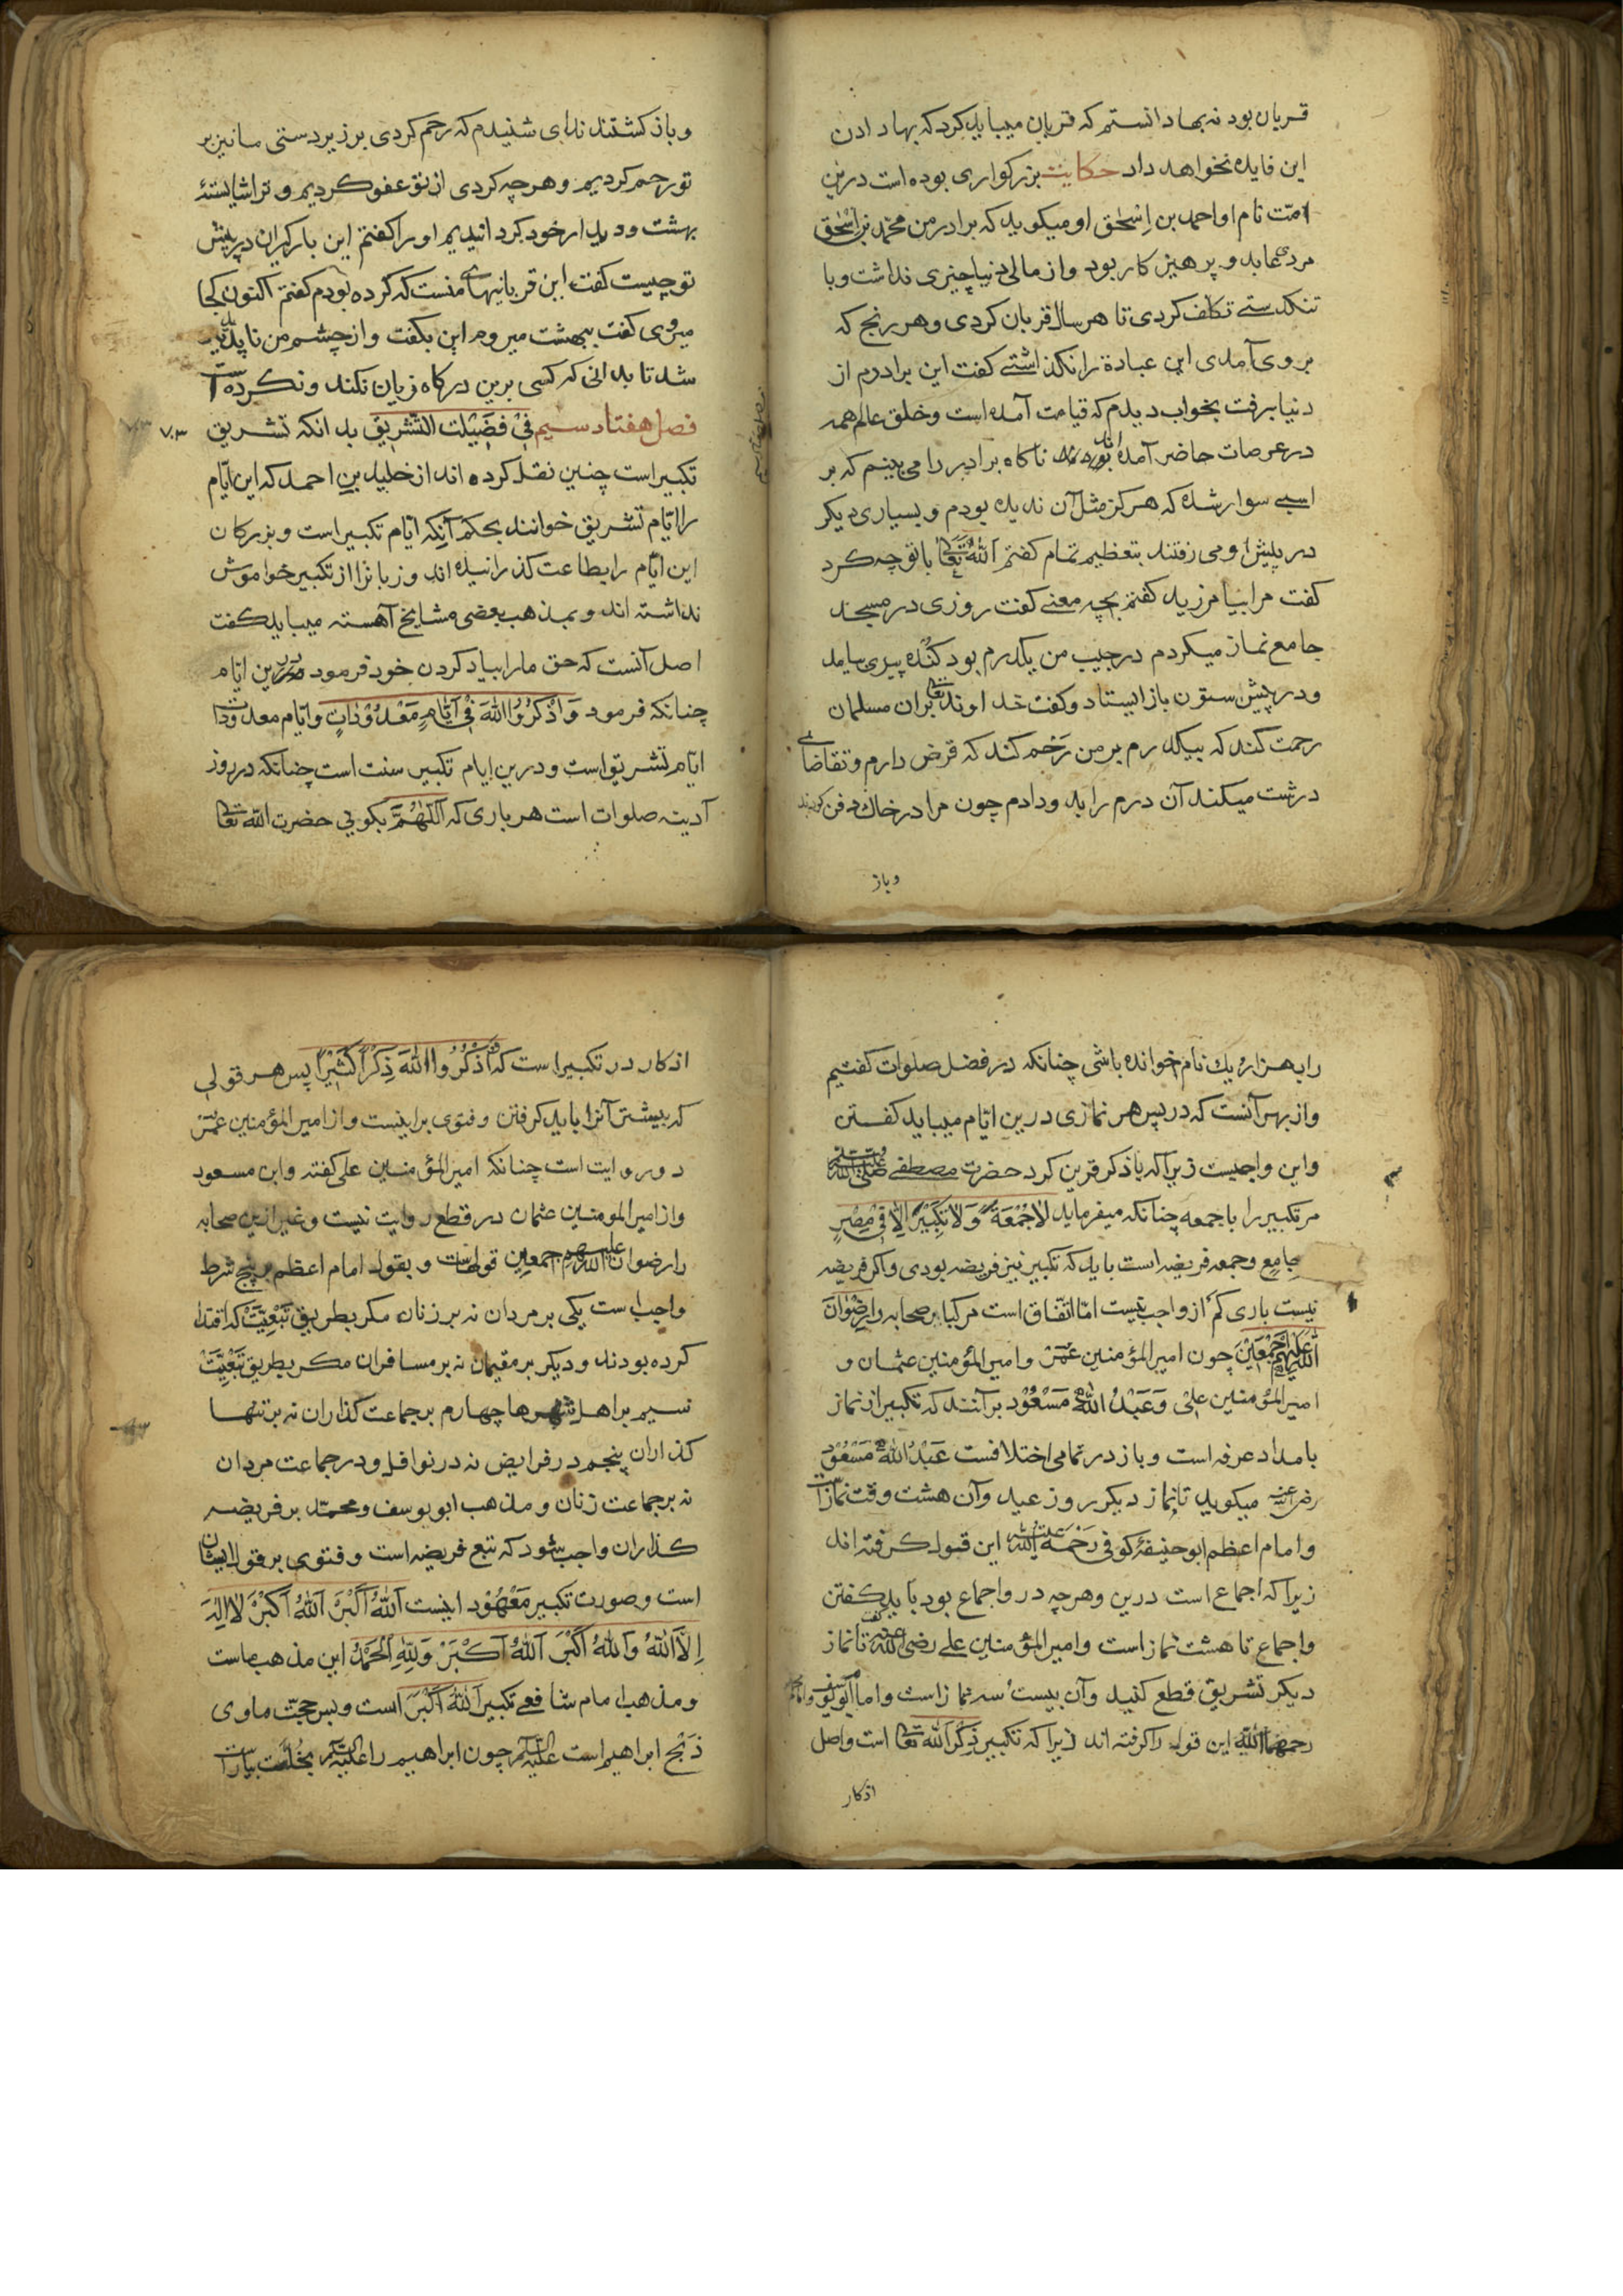 قربان بود نه بها دانستم که قربان میباید کرد که بها دادن
این فایده نخواهد داد حکایت بزرکواری بوده است درین
امّت نام او احمد بن اِسْحٰق او میکوید که برادر من محمّد بن اِسْحٰق
مردی عابد و پرهیز کار بود و از مالی دنیا چیزی نداشت و با
تنکدستے تکلف کردی تا هر سال قربان کردی و هر رنج که
بروی آمدی این عبادة را نکذاشتے کفت این برادرم از
دنیا برفت بخواب دیدم که قیامت آمده است و خلق عالم همه
در عرصات حاضر آمده اند ناکاه برادر را می بینم که بر
اسپے سوار شده که هرکز مثل آن ندیده بودم و بسیاری دیکر
در پیش او می رفتند بتعظیم تمام کفتم اَللّٰهُ تَعَالٰی با تو چه کرد
کفت مرا بیامرزید کفتم بچه معنے کفت روزی در مسجد
جامع نماز میکردم در جیب من یکدرم بود کنده پیری بیامد
و در پیش ستون باز ایستاد و کفت خداوند تعالی بران مسلمان
رحمت کند که بیکدرم بر من رَحْم کند که قرض دارم و تقاضاے
درشت میکنند آن درم را بدو دادم چون مرا در خاک دفن کردند
وباز
و باز کشتند ندای شنیدم که رحم کردی بر زیر دستی ما نیز بر
تو رحم کردیم و هرچه کردی از تو عفو کردیم و ترا شایستۀ
بهشت و دیدار خود کردانیدیم او را کفتم این بارکیران در پیش
تو چیست کفت این قربانیهاے منست که کرده بودم کفتم اکنون کجا
میروی کفت ببهشت میروم این بکفت و از چشم من ناپدید
شد تا بدانی که کسی برین درکاه زیان نکند و نکرده است
فصل هفتاد سیم فِیْ فَضِیْلَت التَّشْرِیْق بدانکه تشریق
۷۰۳
تکبیر است چنین نقل کرده اند از خلیل بن احمد که این ایّام
را ایّام تشریق خوانند بحکم آنکه ایّام تکبیر است و بزرکان
این ایّام را بطاعت کذرانیده اند و زبانرا از تکبیر خواموش
نداشته اند و بمذهب بعضی مشایخ آهسته میباید کفت
اصل آنست که حق ما را بیاد کردن خود فرمود درین ایّام
چنانکه فرمود وَاذْکُرُوا اللّٰهَ فِیْ اَیَّامٍ مَعْدُوْدَاتٍ و ایّام معدودات
ایّام تشریق است و درین ایام تکبیر سنت است چنانکه در روز
آدینه صلوات است هر باری که اَللّٰهُمَّ بکویی حضرت اللّٰه تعالی
را بهزار یک نام خوانده باشی چنانکه در فضل صلوات کفتیم
و از بهر آنست که در پس هر نمازی درین ایّام میباید کفتن
و این واجبست زیرا که با ذکر قرین کرد حضرت مصطفے صلی اللّٰه علیه وسلم
مر تکبیر را با جمعه چنانکه میفرماید لَاجُمْعَةَ وَلَاتَکْبِیْرَ اِلَّا فِیْ مِصْرٍ
جامِعٍ و جمعه فریضه است باید که تکبیر نیز فریضه بودی و اکر فریضه
نیست باری کم از واجب نیست امّا اتّفاق است مر کبایر صحابه را رِضْوَانُ
اللّٰهِ عَلَیْهِمْ اَجْمَعِیْنَ چون امیر المؤمنین عُمَرْ و امیر المؤمنین عثمان و
امیر المؤمنین علی وَعَبْدُ اللّٰهِ مَسْعُوْد برآنند که تکبیر از نماز
بامداد عرفه است و باز در تمامی اختلافست عَبْدُ اللّٰهِ مَسْعُوْد
رضی اللّٰه عنه میکوید تا نماز دیکر روز عید و آن هشت وقت نماز است
و امام اعظم ابو حنیفۀ کوفی رَحْمَةُ اللّٰه علیه این قبول کرفته اند
زیرا که اجماع است درین و هرچه در و اجماع بود باید کفتن
و اجماع تا هشت نماز است و امیر المؤمنین علے رضی اللّٰه عنه کفت تا نماز
دیکر تشریق قطع کنید و آن بیست سه نماز است و امام ابو یوسف و امام محمد
رحمهما اللّٰه این قول را کرفته اند زیرا که تکبیر ذِکْرُ اللّٰه تعالی است و اصل
اذکار
اذکار در تکبیر است که اُذْکُرُوا اللّٰهَ ذِکْرًا کَثِیْرًا پس هر قولی
که بیشتر آنرا باید کرفتن و فتوی برینست و از امیر المؤمنین عمَرْ
دو روایت است چنانکه امیر المؤمنین علی کفته و ابن مسعود
و از امیر المومنین عثمان در قطع روایت نیست و غیر ازین صحابه
را رضوان اللّٰه علیهم اجمعین قولهاست و بقول امام اعظم بر پنج شرط
واجب است یکی بر مردان نه بر زنان مکر بطریق تَبْعِیَّتْ که اقتدا
کرده بودند و دیکر بر مقیمان نه بر مسافران مکر بطریق تَبْعِیَّتْ
سیم بر اهل شهرها چهارم بر جماعت کذاران نه بر تنها
کذاران پنجم در فرایض نه در نوافل و در جماعت مردان
نه بر جماعت زنان و مذهب ابو یوسف و محمّد بر فریضه
کذاران واجب شود که تبع فریضه است و فتوی بر قول ایشان
است و صورت تکبیر مَعْهُوْد اینست اَللّٰهُ اَکْبَرْ اَللّٰهُ اَکْبَرْ لَا اِلٰهَ
اِلَّا اللّٰهُ وَاللّٰهُ اَکْبَرْ اَللّٰهُ اَکْبَرْ وَلِلّٰهِ الْحَمْدُ این مذهب ماست
و مذهب امام شافعے تکبیر اَللّٰهُ اَکْبَرْ است و بس حجّت ما وی
ذَبْح ابراهیم است علیه السلام چون ابراهیم را علیه السلام بخُلَّت بیاراست